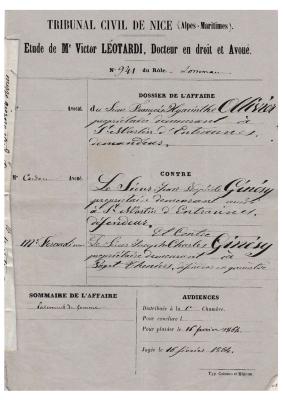 TRIBUNAL CIVIL DE NICE (Alpes-Maritimes).
Etude de Me Victor LÉOTARDI, Docteur en droit et Avoué.
No 941 du Rôle.
DOSSIER DE L'AFFAIRE
Avocat. du Sieur François Hyacinthe Ollivier
propriétaire demeurant à
St Martin d'Entraunes,
demandeur.
CONTRE
Me Avoué. Le Sieur Jean Génésy
propriétaire demeurant aussi
à St Martin d'Entraunes,
défendeur.
Et Contre
le Sieur Joseph Charles Génésy
propriétaire demeurant à
SOMMAIRE DE L'AFFAIRE
AUDIENCES
Distribuée à la 1e Chambre.
Pour conclure l
Pour plaider le 16 février 1864
Jugée le 16 février 1864.
Typ.